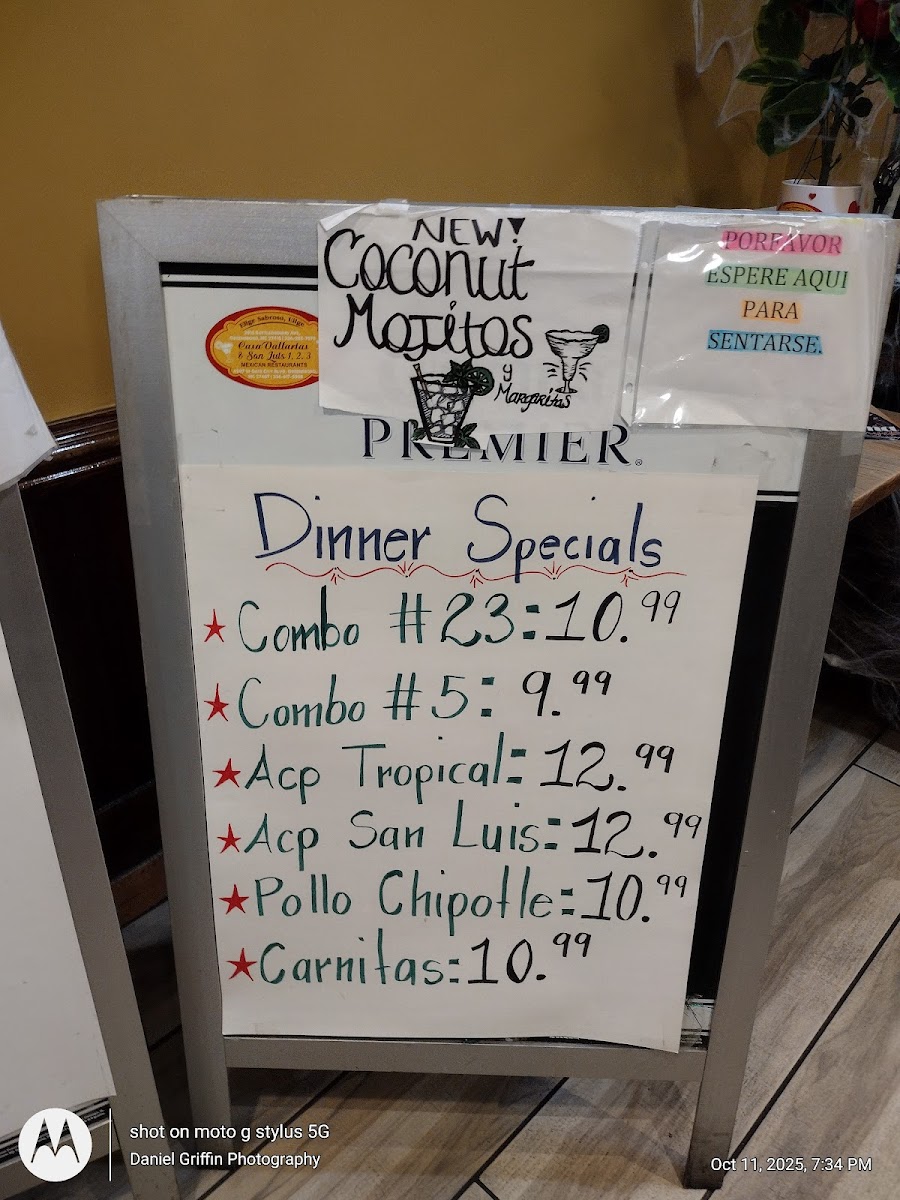 NEW!
Coconut
Mojitos
y
Margaritas
PORFAVOR
ESPERE AQUI
PARA
SENTARSE.
Elige Sabroso, Elige
Casa Vallartas
& San Luis 1, 2, 3
MEXICAN RESTAURANTS
PREMIER®
Dinner Specials
★ Combo #23: 10.99
★ Combo #5: 9.99
★ Acp Tropical: 12.99
★ Acp San Luis: 12.99
★ Pollo Chipotle: 10.99
★ Carnitas: 10.99
shot on moto g stylus 5G
Daniel Griffin Photography
Oct 11, 2025, 7:34 PM